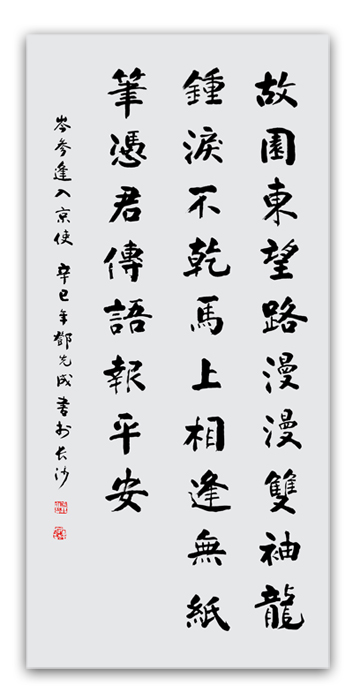 故園東望路漫漫雙袖龍
鍾淚不乾馬上相逢無紙
筆憑君傳語報平安
岑參逢入京使 辛巳年鄧先成書於长沙